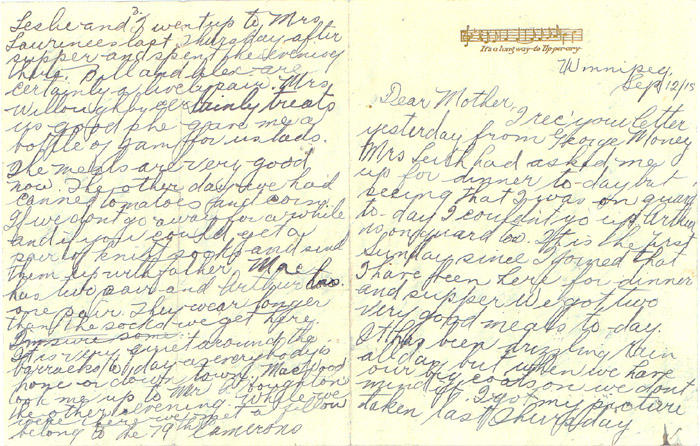 It's a long way to Tipperary
Winnipeg,
Sept 12/15
Dear Mother,
I rec' you letter
yesterday from George Money
Mrs Leish had asked me
up for dinner to-day but
seeing that I was on guard
to-day I couldn't go up. Arthur
is on guard too. This is the first
Sunday since I joined that
I have been here for dinner
and supper. We got two
very good meals to-day.
It has been drizzling rain
all day but when we have
our big coats on we don't
mind it. I got my picture
taken last Thursday.
Leslie and I went up to Mrs
Laurences last Thursday after
supper and spent the evening
there. Bill and Alex are
certainly a live pair. Mrs
Willoughby certainly treats
us good she gave me a
bottle of jam for us lads.
The meals are very good
now. The other day we had
canned tomatoes and corn.
If we don't go away for a while
and if you could get a
pair of knit socks and send
them up with father. Mac
has two pair and Wilbur has
one pair. They wear longer
than the socks we get here
I'm sure some.
It is very quiet around the
barracks to-day as everybody is
home or down town. MacLeod
took me up to Mr Boughton
the other evening. While we
were there we met a fellow
belong to the 79th Camerons